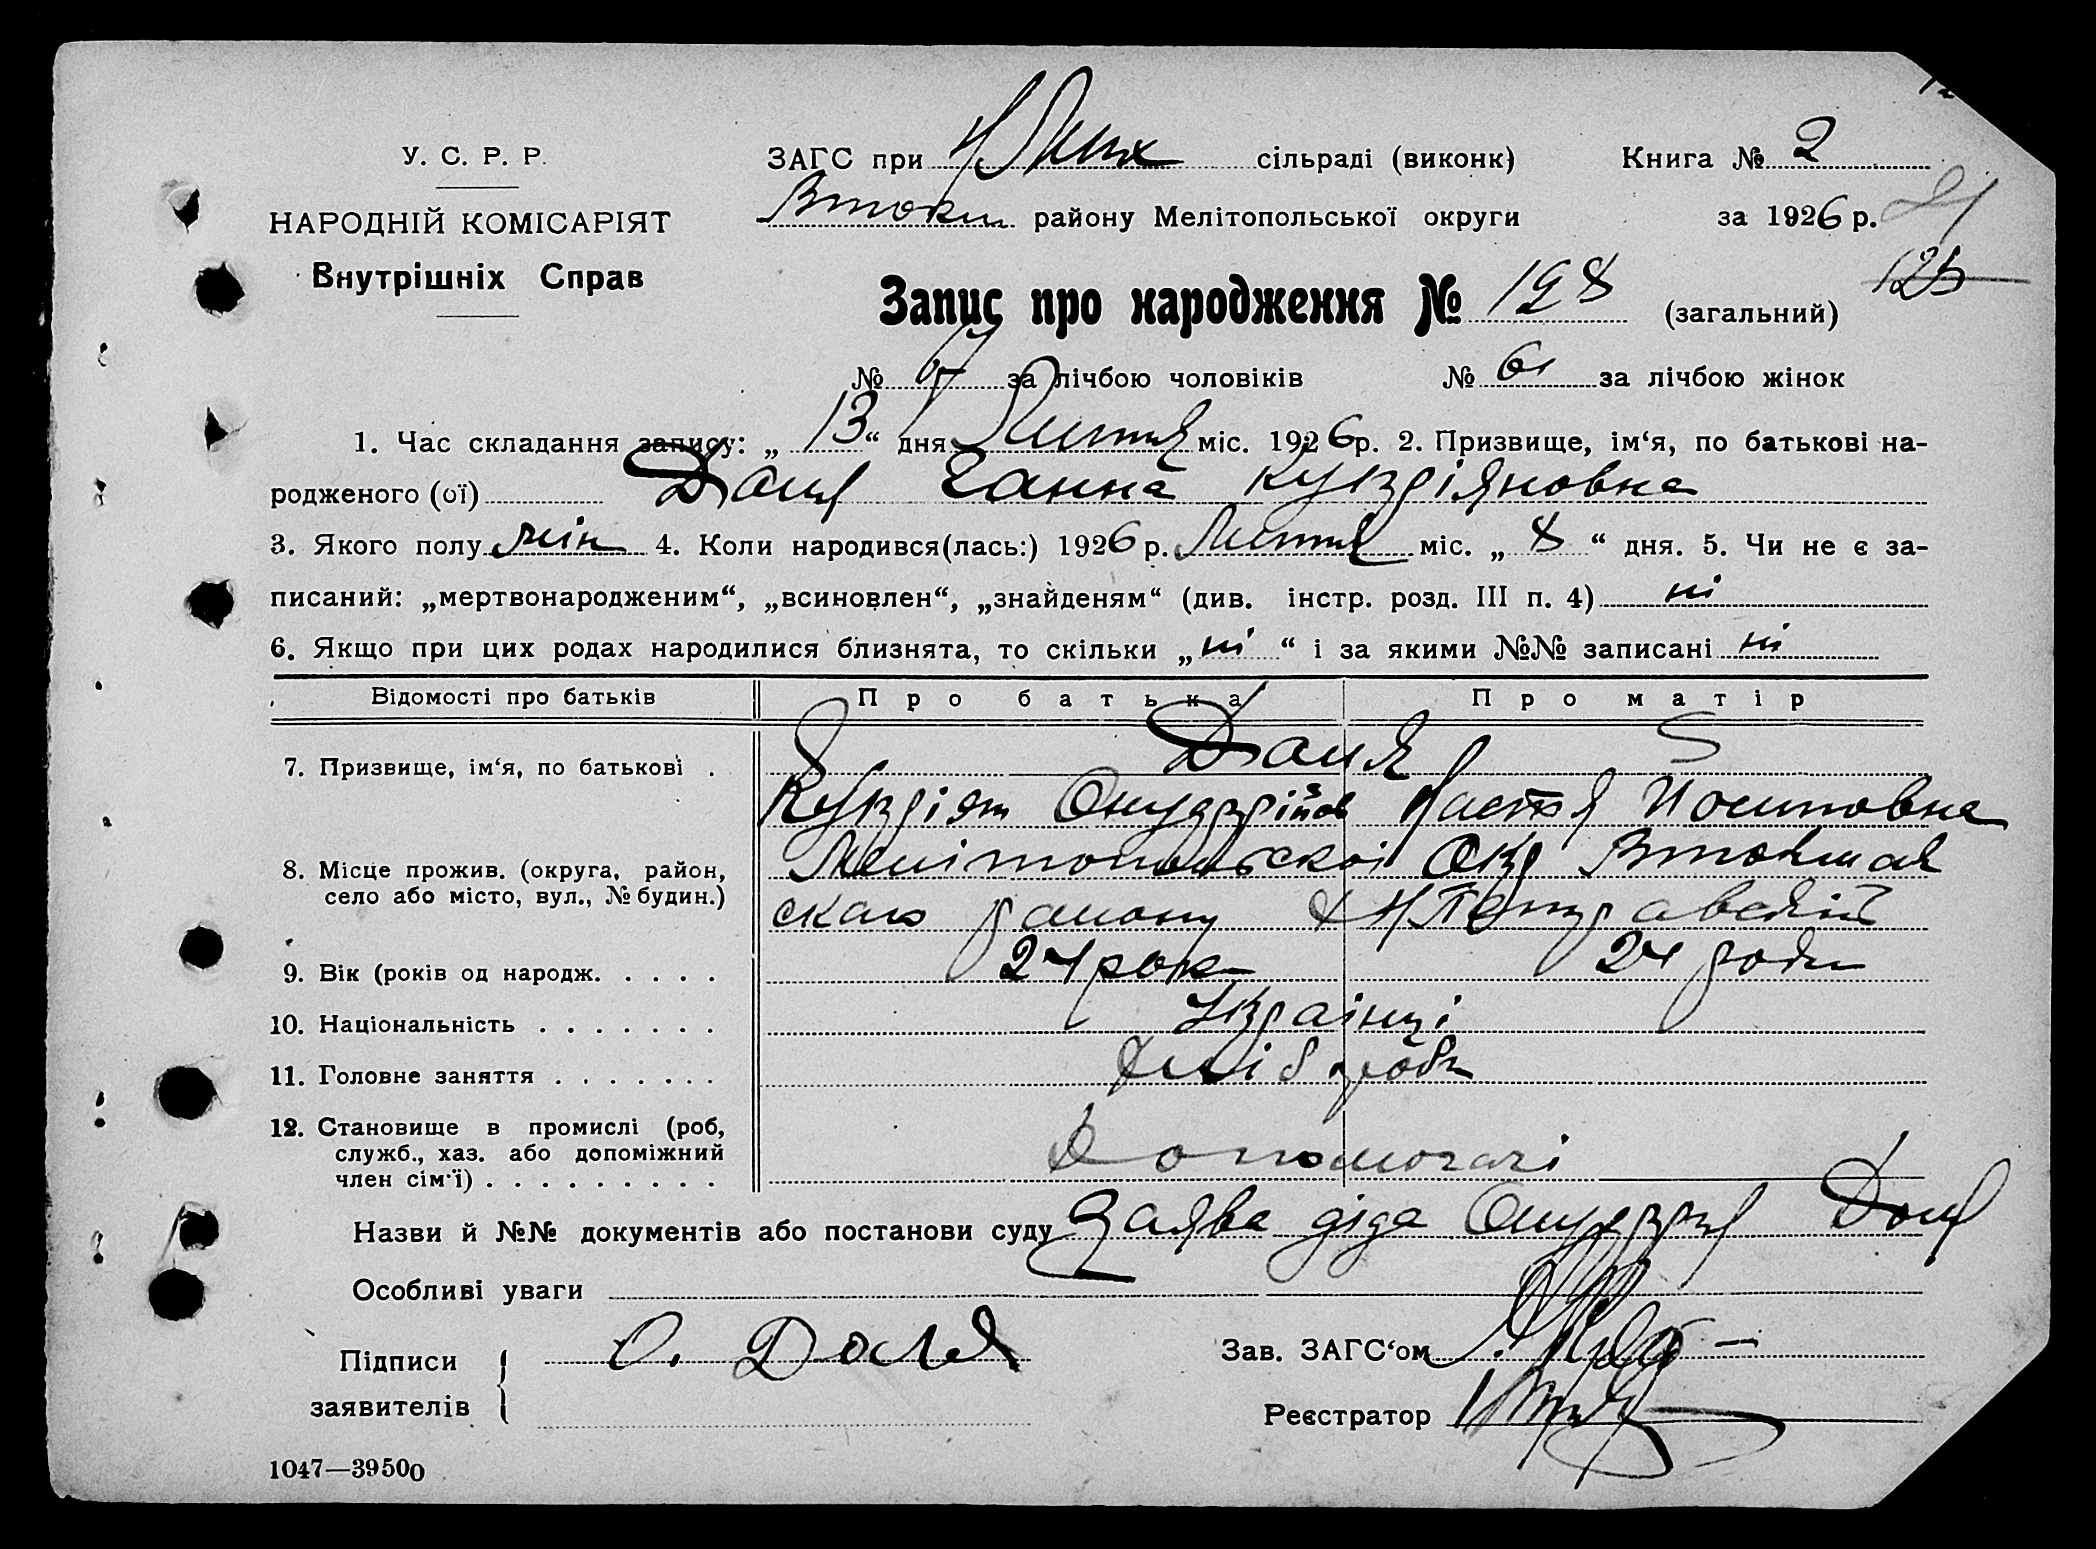 У. С. Р. Р.
НАРОДНІЙ КОМІСАРІЯТ
Внутрішніх Справ
ЗАГС при сільраді (виконк)
Книга № 2
району Мелітопольської округи
за 1926 р. 21
125
Запис про народження № 128 (загальний)
№ 67 за лічбою чоловіків № 61 за лічбою жінок
1. Час складання запису: „13“ дня Липня міс. 1926р. 2. Призвище, ім‘я, по батькові на-
родженого (ої) Доля Ганна Купріяновна
3. Якого полу жін 4. Коли народився(лась:) 1926 р. Липня міс. „8“ дня. 5. Чи не є за-
писаний: „мертвонародженим“, „всиновлен“, „знайденям“ (див. інстр. розд. III п. 4) ні
6. Якщо при цих родах народилися близнята, то скільки „ні“ і за якими №№ записані ні
Відомості про батьків Про батька Про матір
7. Призвище, ім‘я, по батькові . Доля
Купріян Онуфрійов Настя Йосиповна
8. Місце прожив. (округа, район, Мелітопольскоі Окр
село або місто, вул., № будин.) скаго району
9. Вік (років од народж. . . . . 24 рок 24 годи
10. Національність . . . . . . . Українці
11. Головне заняття . . . . . . . Хлібороби
12. Становище в промислі (роб,
служб., хаз. або допоміжний Допомогачі
член сім‘ї) . . . . . . . . .
Назви й №№ документів або постанови суду Заява діда Онуфрия Доля
Особливі уваги
Підписи О. Доля
заявителів
Зав. ЗАГС‘ом
Реєстратор
1047—39500